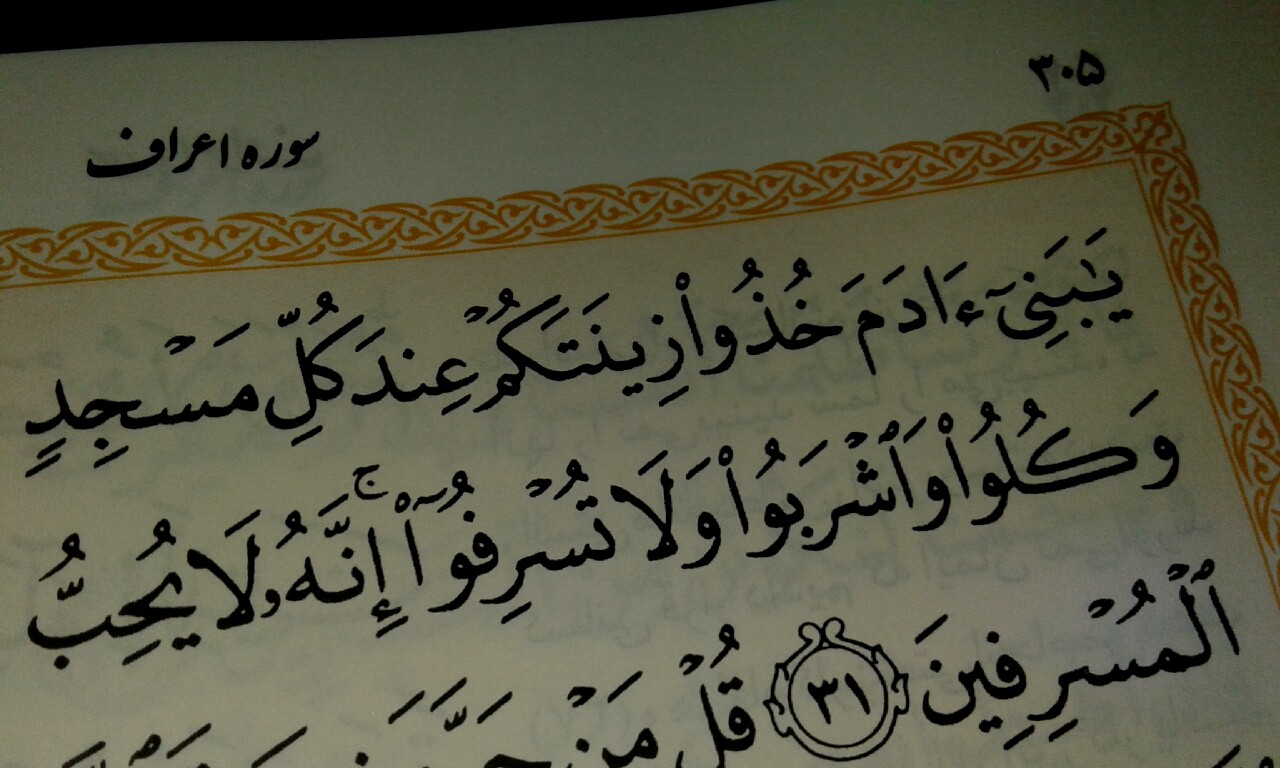 ۳۰۵
سوره اعراف
يَٰبَنِىٓ ءَادَمَ خُذُوا۟ زِينَتَكُمْ عِندَ كُلِّ مَسْجِدٍ
وَكُلُوا۟ وَٱشْرَبُوا۟ وَلَا تُسْرِفُوٓا۟ ۚ إِنَّهُۥ لَا يُحِبُّ
ٱلْمُسْرِفِينَ ۳۱ قُلْ مَنْ